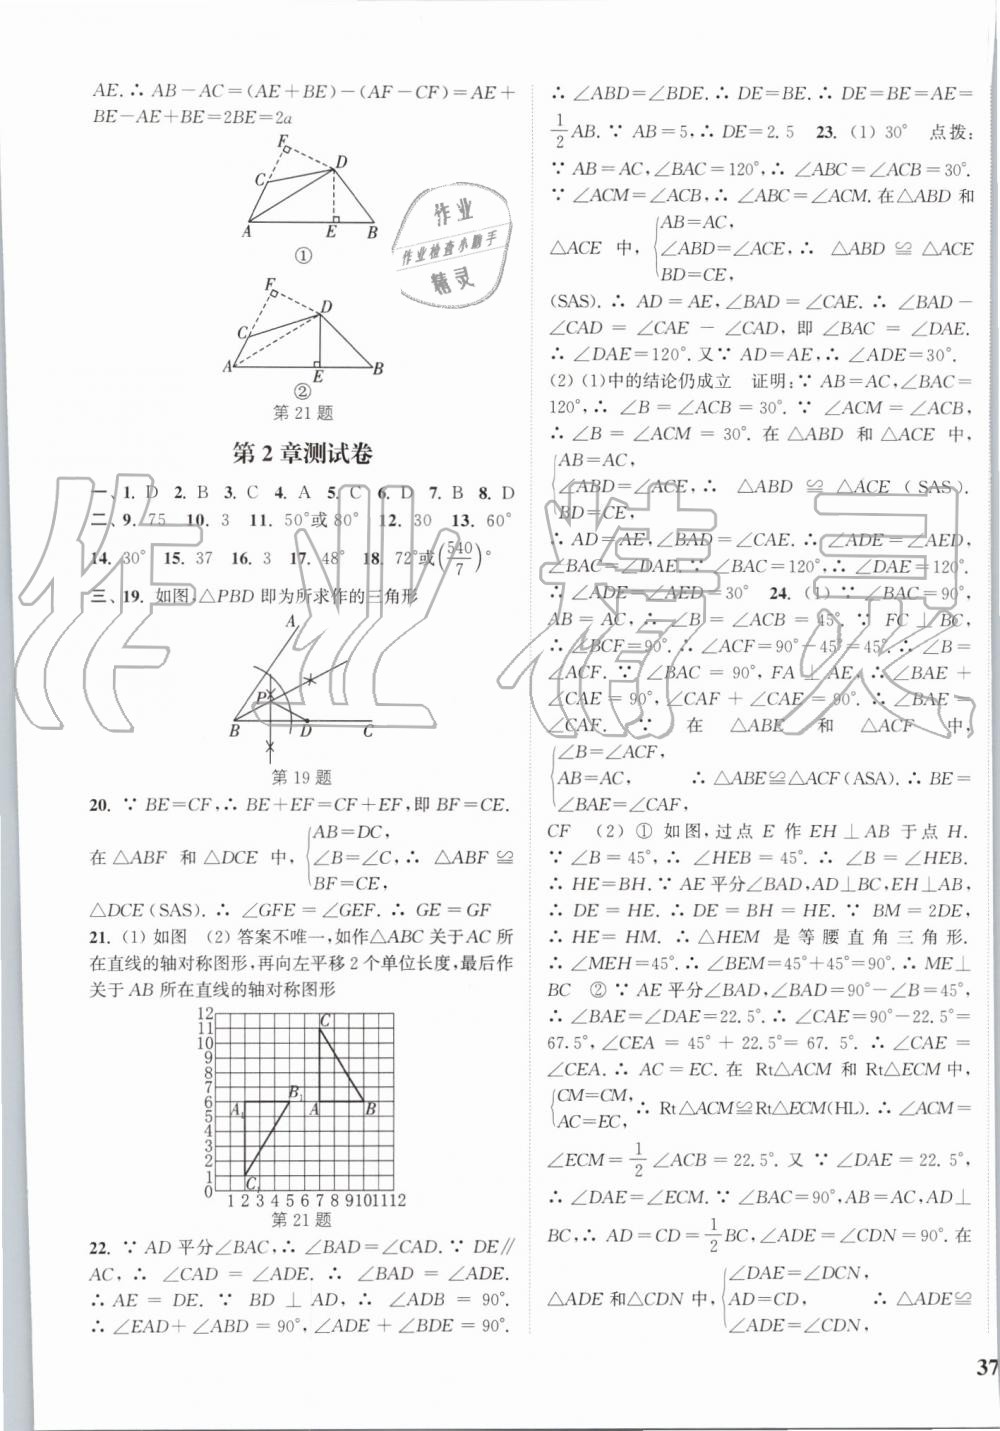 AE.∴ AB-AC=(AE+BE)-(AF-CF)=AE+
BE-AE+BE=2BE=2a
F
D
C
A
E
B
①
F
D
C
A
E
B
②
第21题
第2章测试卷
一、1. D 2. B 3. C 4. A 5. C 6. D 7. B 8. D
二、9. 75 10. 3 11. 50°或80° 12. 30 13. 60°
14. 30° 15. 37 16. 3 17. 48° 18. 72°或(540/7)°
三、19. 如图,△PBD 即为所求作的三角形
A
P
B
D
C
第19题
20. ∵ BE=CF,∴ BE+EF=CF+EF,即 BF=CE.
在△ABF 和△DCE 中,{AB=DC,
∠B=∠C,∴ △ABF≌
BF=CE,
△DCE(SAS).∴ ∠GFE=∠GEF.∴ GE=GF
21. (1) 如图 (2) 答案不唯一,如作△ABC 关于AC 所
在直线的轴对称图形,再向左平移2个单位长度,最后作
关于 AB 所在直线的轴对称图形
12
11
10
9
8
7
6
5
4
3
2
1
0
C
B₁
A₁
A
B
C₁
1 2 3 4 5 6 7 8 9 10 11 12
第21题
22. ∵ AD 平分∠BAC,∴ ∠BAD=∠CAD.∵ DE∥
AC,∴ ∠CAD = ∠ADE.∴ ∠BAD = ∠ADE.
∴ AE = DE.∵ BD ⊥ AD,∴ ∠ADB = 90°.
∴ ∠EAD+∠ABD=90°,∠ADE+∠BDE=90°.
∴ ∠ABD=∠BDE.∴ DE=BE.∴ DE=BE=AE=
1/2 AB.∵ AB=5,∴ DE=2.5 23. (1) 30° 点拨:
∵ AB=AC,∠BAC=120°,∴ ∠ABC=∠ACB=30°.
∵ ∠ACM=∠ACB,∴ ∠ABC=∠ACM.在△ABD 和
△ACE 中,{AB=AC,
∠ABD=∠ACE,∴ △ABD ≌ △ACE
BD=CE,
(SAS).∴ AD=AE,∠BAD=∠CAE.∴ ∠BAD-
∠CAD = ∠CAE - ∠CAD,即 ∠BAC = ∠DAE.
∴ ∠DAE=120°.又∵ AD=AE,∴ ∠ADE=30°.
(2) (1)中的结论仍成立 证明:∵ AB=AC,∠BAC=
120°,∴ ∠B = ∠ACB = 30°.∵ ∠ACM = ∠ACB,
∴ ∠B = ∠ACM = 30°.在 △ABD 和 △ACE 中,
{AB=AC,
∠ABD=∠ACE,∴ △ABD ≌ △ACE (SAS).
BD=CE,
∴ AD=AE,∠BAD=∠CAE.∴ ∠ADE=∠AED,
∠BAC=∠DAE.∵ ∠BAC=120°,∴ ∠DAE=120°.
∴ ∠ADE=∠AED=30° 24. (1) ∵ ∠BAC=90°,
AB = AC,∴ ∠B = ∠ACB = 45°.∵ FC ⊥ BC,
∴ ∠BCF=90°.∴ ∠ACF=90°-45°=45°.∴ ∠B=
∠ACF.∵ ∠BAC = 90°,FA ⊥ AE,∴ ∠BAE +
∠CAE=90°,∠CAF+∠CAE=90°.∴ ∠BAE=
∠CAF.∵ 在 △ABE 和 △ACF 中,
{∠B=∠ACF,
AB=AC, ∴ △ABE≌△ACF(ASA).∴ BE=
∠BAE=∠CAF,
CF (2) ① 如图,过点 E 作 EH⊥AB 于点 H.
∵ ∠B = 45°,∴ ∠HEB = 45°.∴ ∠B = ∠HEB.
∴ HE=BH.∵ AE平分∠BAD,AD⊥BC,EH⊥AB,
∴ DE = HE.∴ DE = BH = HE.∵ BM = 2DE,
∴ HE = HM.∴ △HEM 是等腰直角三角形.
∴ ∠MEH=45°.∴ ∠BEM=45°+45°=90°.∴ ME⊥
BC ② ∵ AE平分∠BAD,∠BAD=90°-∠B=45°,
∴ ∠BAE=∠DAE=22.5°.∴ ∠CAE=90°-22.5°=
67.5°,∠CEA = 45° + 22.5° = 67.5°.∴ ∠CAE =
∠CEA.∴ AC=EC.在 Rt△ACM 和 Rt△ECM中,
{CM=CM,
AC=EC, ∴ Rt△ACM≌Rt△ECM(HL).∴ ∠ACM=
∠ECM= 1/2 ∠ACB=22.5°.又∵ ∠DAE=22.5°,
∴ ∠DAE=∠ECM.∵ ∠BAC=90°,AB=AC,AD⊥
BC,∴ AD=CD= 1/2 BC,∠ADE=∠CDN=90°.在
△ADE 和△CDN 中,{∠DAE=∠DCN,
AD=CD, ∴ △ADE≌
∠ADE=∠CDN,
37
作业
作业检查小助手
精灵
作业精灵